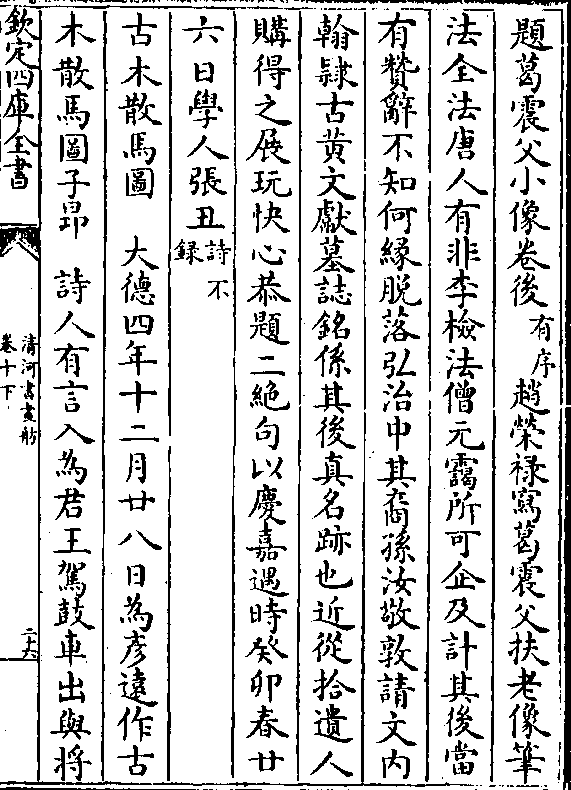 題葛震父小像卷後 有序 趙榮祿寫葛震父扶老像筆
法全法唐人有非李檢法僧元靄所可企及計其後當
有贊辭不知何緣脫落弘治中其裔孫汝敬敦請文內
翰隷古黃文獻墓誌銘係其後真名跡也近從拾遺人
購得之展玩快心恭題二絶句以慶嘉遇時癸卯春廿
六日學人張丑 詩不録
古木散馬圖 大德四年十二月廿八日為彥遠作古
木散馬圖子昻 詩人有言入為君王駕鼓車出與將
欽定四庫全書
清河書畫舫
卷十下
二十六